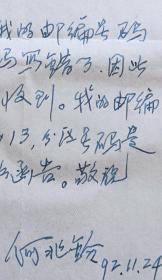 我的邮编号码
写错了.因此
收到。我的邮编
13,分区号码是
函告。敬祝
何兆
92.11.24